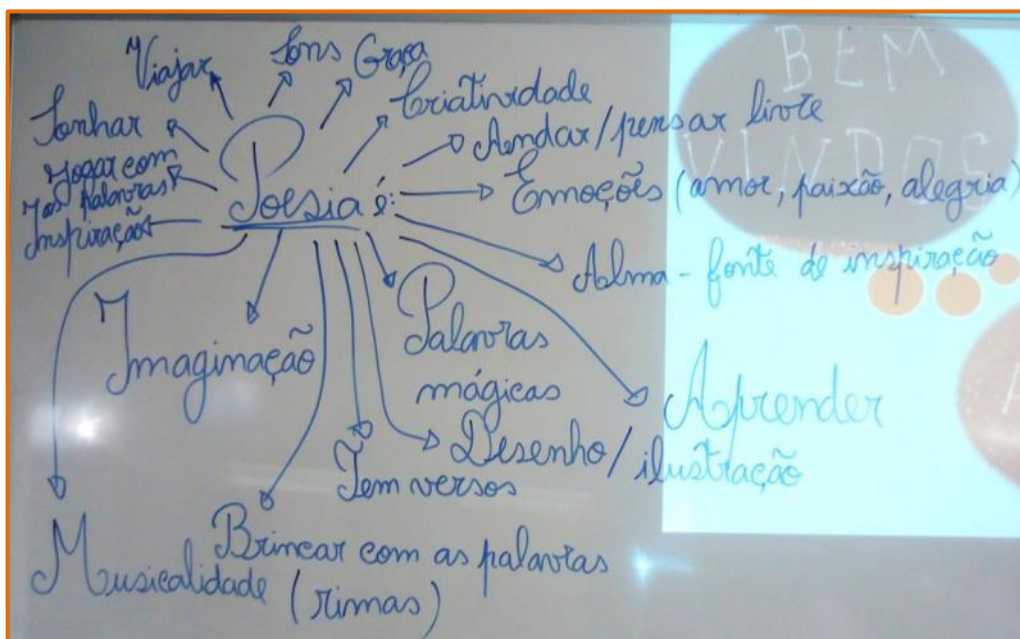 Viajar
Sons
Graça
Criatividade
Sonhar
Andar/pensar livre
Jogar com
as palavras
Inspiração
Poesia é:
Emoções (amor, paixão, alegria)
Alma - fonte de inspiração
Imaginação
Palavras
mágicas
Aprender
Desenho/ilustração
Tem versos
Brincar com as palavras
Musicalidade (rimas)
BEM
VINDOS
A